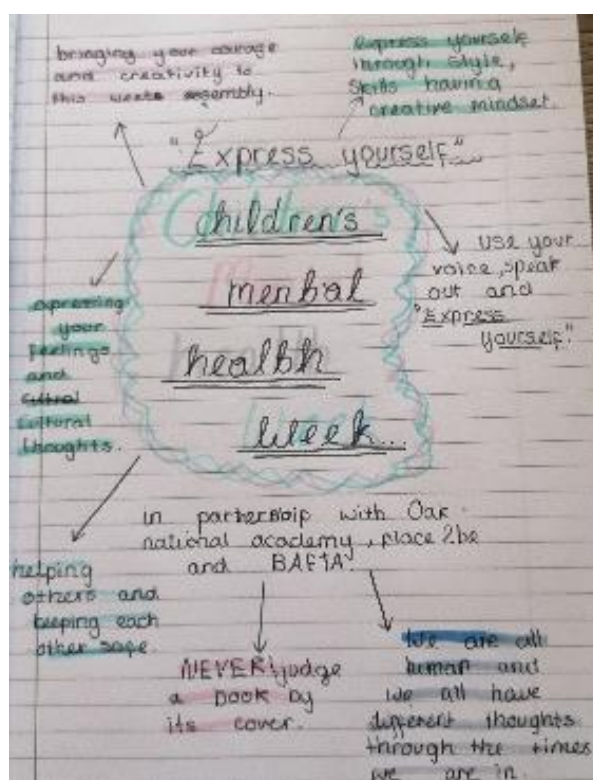 bringing your courage
and creativity to
this weeks assembly.
express yourself
through style,
skills having a
creative mindset.
"Express yourself"
children's
mental
health
week...
use your
voice, speak
out and
"Express
yourself."
expressing
your
feelings
and
cultural
thoughts.
in partership with Oak
national academy, place 2be
and BAFTA.
helping
others and
keeping each
other safe.
NEVER judge
a book by
its cover.
We are all
human and
we all have
different thoughts
through the times
we are in